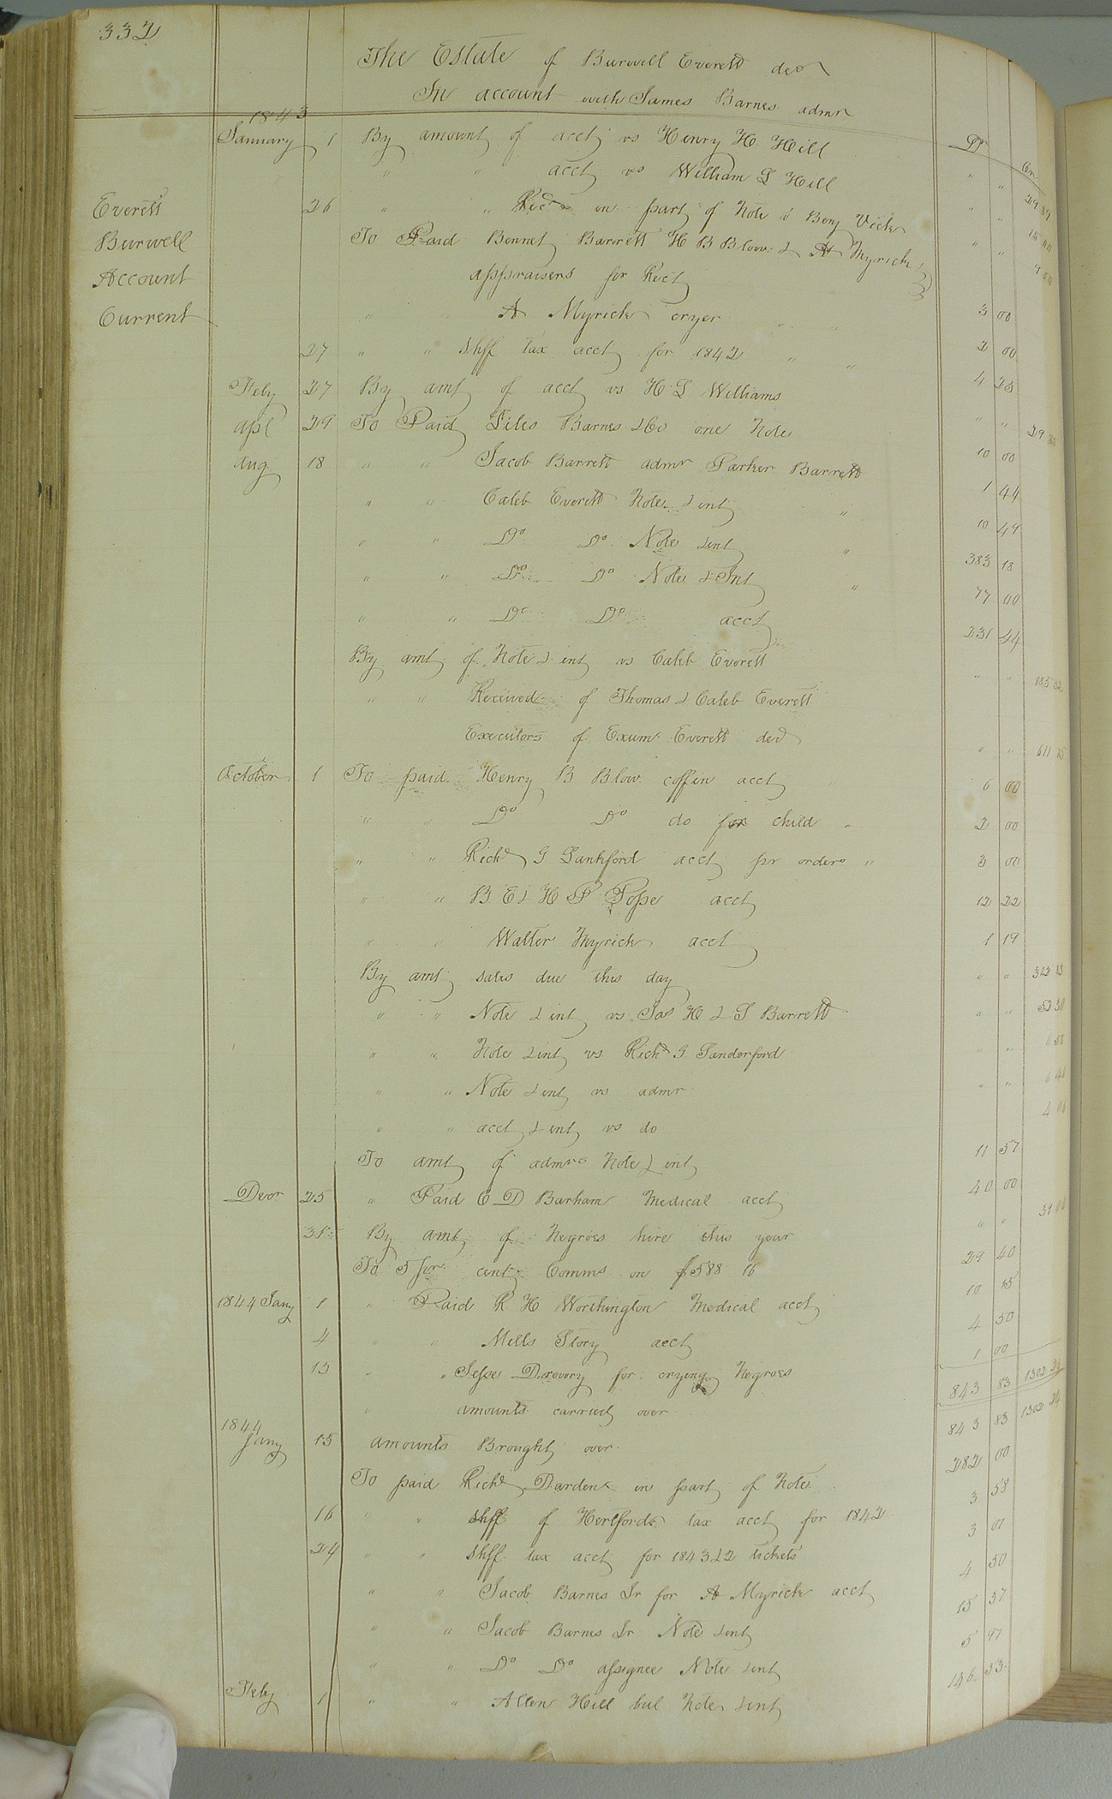 332
The Estate of Burwell Everett decd
In account with James Barnes admr
1843 Dr Cr
January 1 By amount of acct vs Henry H. Hill
" " acct vs William L Hill
26 " " Recd in part of Note o Benj Vick
To Paid Bennet Barrett H B Blow & A Myrick
appraisers for Rect 3 00
" " A Myrick cryer " 2 00
27 " " Shff tax acct for 1842 " 4 28
Feby 27 By amt of acct vs H L Williams " "
apl 29 To Paid Files Barnes &Co one Note 10 00
Aug 18 " " Jacob Barrett admr Parker Barrett 1 44
" " Caleb Everett Note & int " 10 49
" " Do Do Note &int " 383 18
" " Do Do Note & Int " 77 00
" " Do Do acct 231 44
By amt of Note & int vs Caleb Everett " "
" " Received of Thomas & Caleb Everett
Executors of Exum Everett decd " "
October 1 To paid Henry B Blow coffin acct 6 00
" " Do Do do for child " 2 00
" " Richd G Lankford acct pr order " 3 00
" " B. E & H P Pope acct 12 22
" " Walter Myrick acct 1 19
By amt sales due this day " "
" " Note & int vs Jas H & T Barrett " "
" " Note &int vs Richd G Sanderford " "
" " Note & int vs admr " "
" " acct & int vs do
To amt of admrs Note & int 11 57
Decr 25 " Paid C D Barham Medical acct 40 00
31 By amt of Negroes hire this year " "
To 5 per cent Comms on $588 16 29 40
1844 Jany 1 " Paid R H Worthington Medical acct 10 15
4 " " Mills Story acct 4 50
15 " " Jesse Drewery for crying Negroes 1 00
" amounts carried over 843 83 1302 24
1844
Jany 15 amounts Brought over 843 83 1302 24
To paid Richd Darden in part of Note 282 00
16 " " Shff of Hertford tax acct for 1842 3 58
24 " " Shff tax acct for 1843 &2 tickets 3 01
" " Jacob Barnes Jr for A Myrick acct 4 50
" " Jacob Barnes Jr Note &int 15 57
" " Do Do assignee Note &int 5 97
Feby 1 " " Allen Hill bal Note &int 146 53
Everett
Burwell
Account
Current